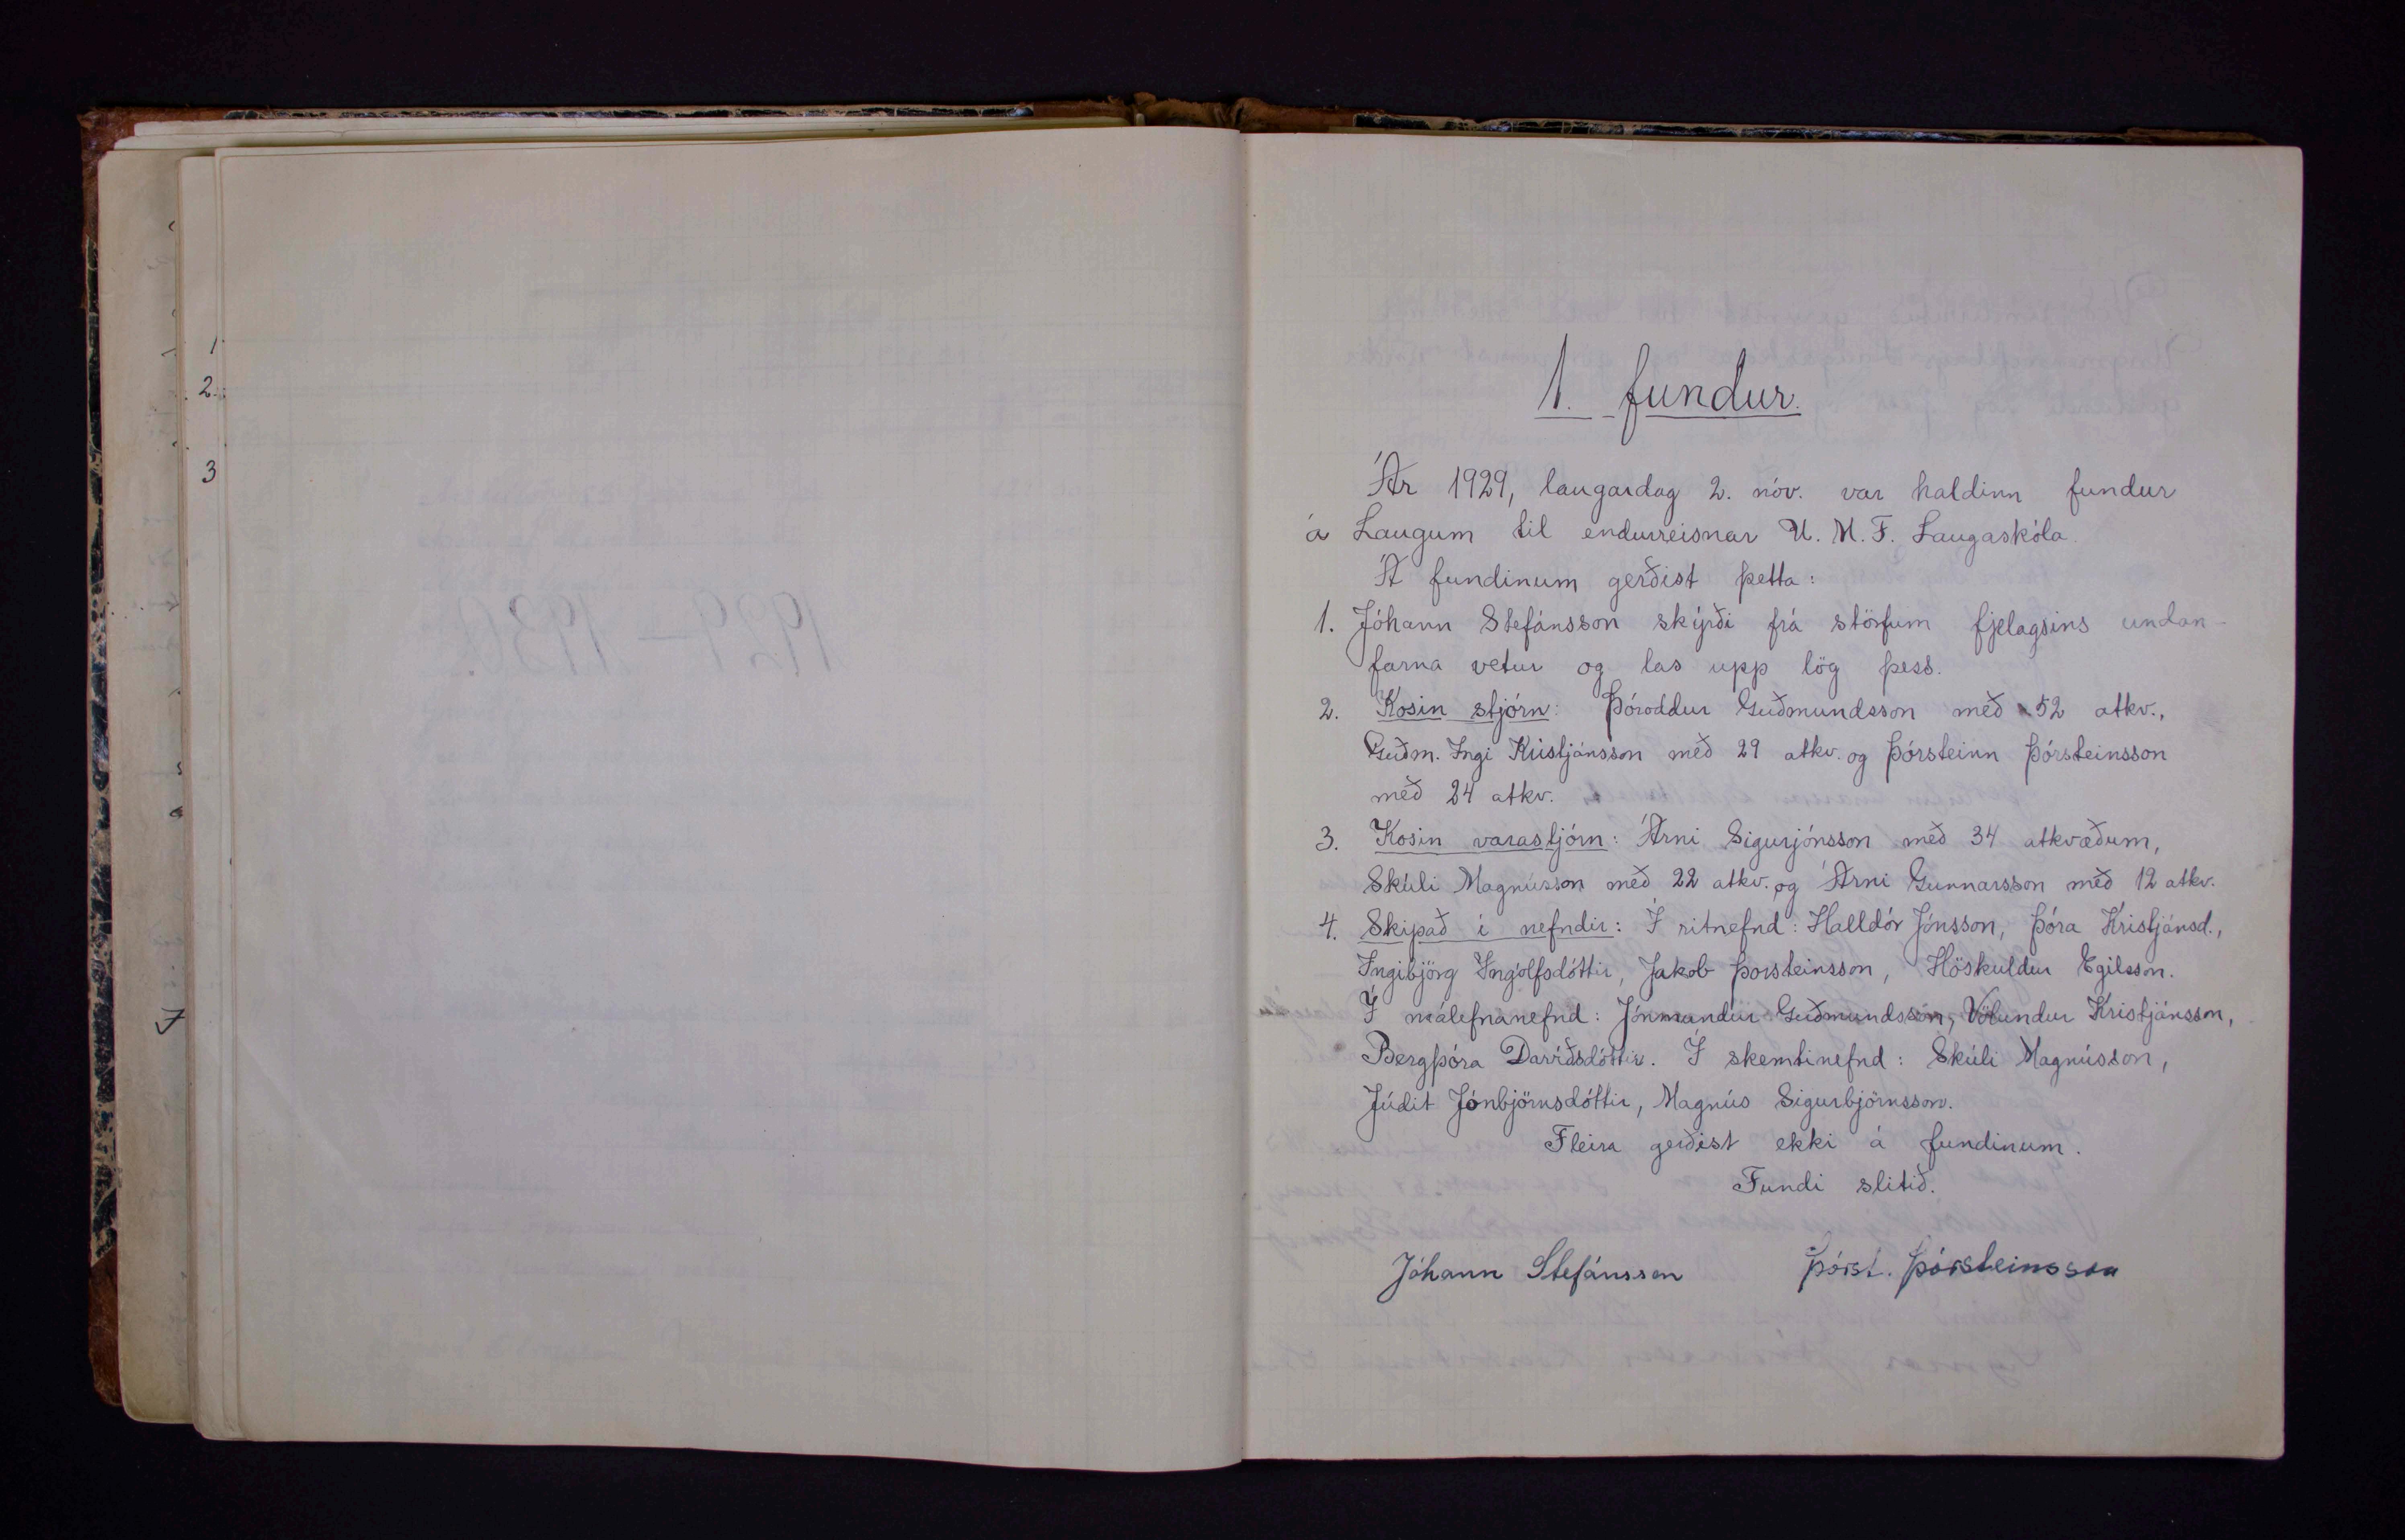 1.
2.
3
1. fundur.
Ár 1929, laugardag 2. nóv. var haldinn fundur
á Laugum til endurreisnar U. M. F. Laugaskóla.
Á fundinum gerðist þetta:
1. Jóhann Stefánsson skýrði frá störfum fjelagsins undan-
farna vetur og las upp lög þess.
2. Kosin stjórn: Þóroddur Guðmundsson með 52 atkv.,
Guðm. Ingi Kristjánsson með 29 atkv. og Þórsteinn Þórsteinsson
með 24 atkv.
3. Kosin varastjórn: Árni Sigurjónsson með 34 atkvæðum,
Skúli Magnússon með 22 atkv. og Árni Gunnarsson með 12 atkv.
4. Skipað í nefndir: Í ritnefnd: Halldór Jónsson, Þóra Kristjánsd.,
Ingibjörg Ingólfsdóttir, Jakob Þorsteinsson, Höskuldur Egilsson.
Í málefnanefnd: Jónmundur Guðmundsson, Völundur Kristjánsson,
Bergþóra Davíðsdóttir. Í skemtinefnd: Skúli Magnússon,
Júdit Jónbjörnsdóttir, Magnús Sigurbjörnsson.
Fleira gerðist ekki á fundinum.
Fundi slitið.
Jóhann Stefánsson Þórst. Þórsteinsson